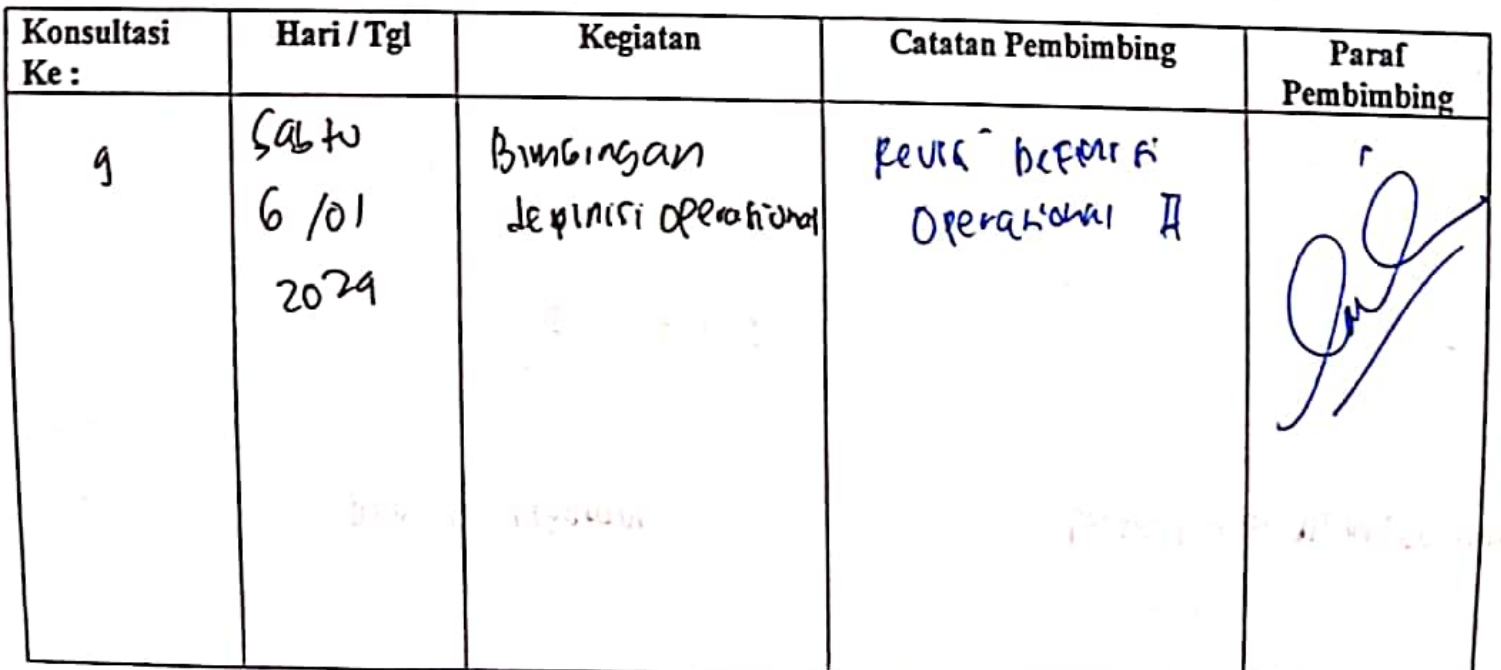 Konsultasi Ke :
Hari / Tgl
Kegiatan
Catatan Pembimbing
Paraf Pembimbing
9
Sabtu
6 /01
2024
Bimbingan
depinisi operational
Revisi Definisi
Operational II